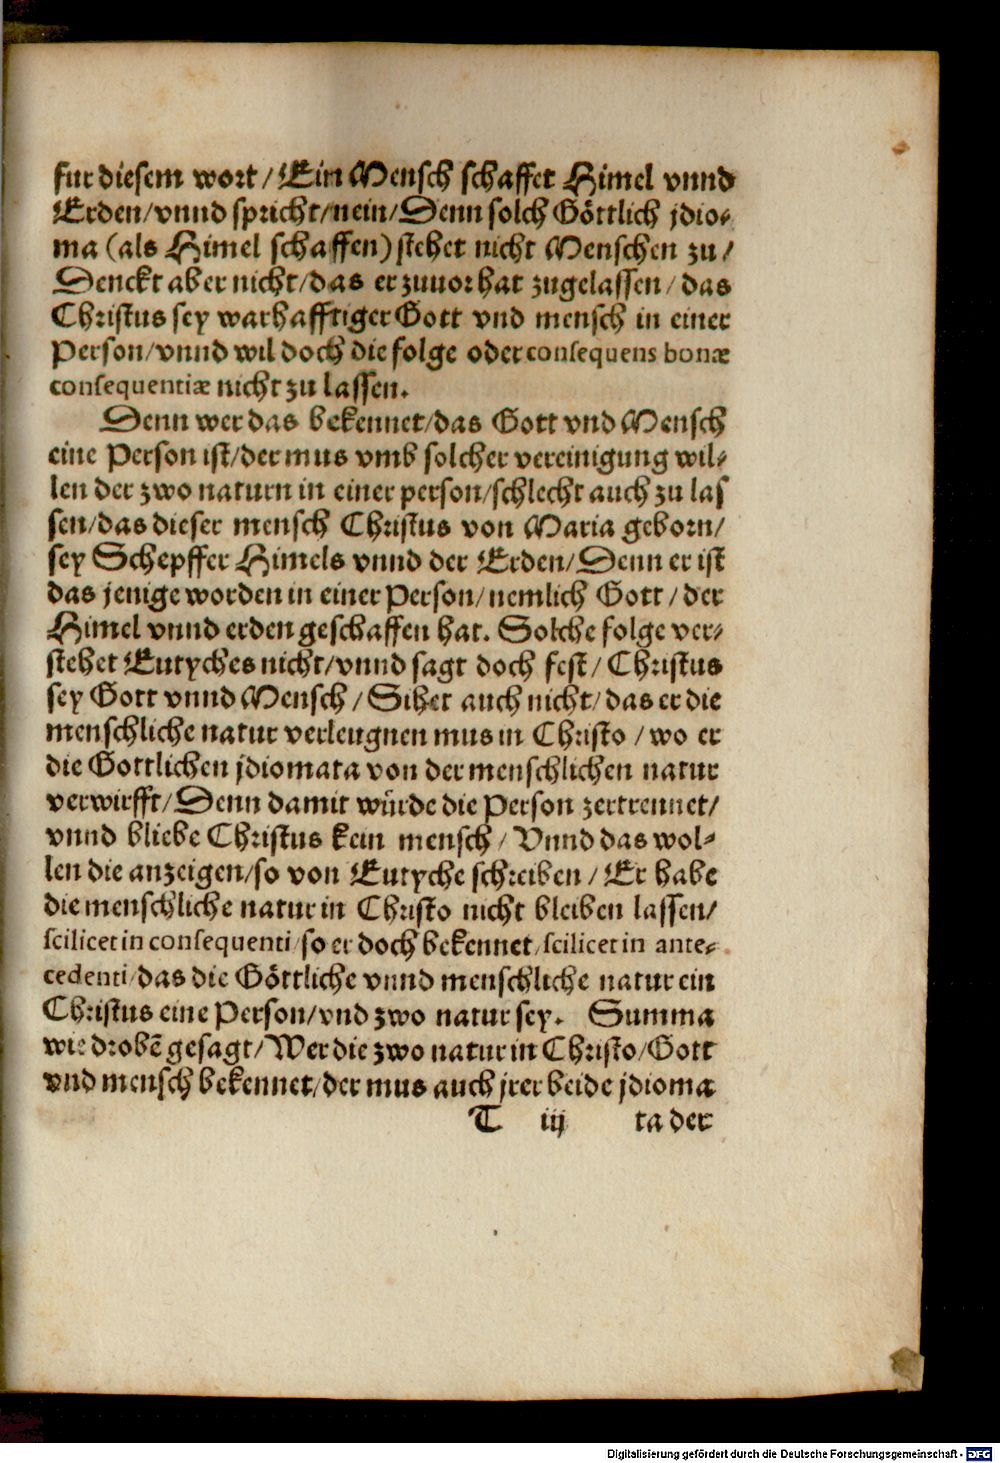 fur diesem wort / Ein Mensch schaffet Himel vnnd
Erden/vnnd spricht/nein/Denn solch Göttlich jdio-
ma (als Himel schaffen) stehet nicht Menschen zu/
Denckt aber nicht/das er zuuor hat zugelassen/das
Christus sey warhafftiger Gott vnd mensch in einer
Person/vnnd wil doch die folge oder consequens bonæ
consequentiæ nicht zu lassen.
Denn wer das bekennet/das Gott vnd Mensch
eine Person ist/der mus vmb solcher vereinigung wil-
len der zwo naturn in einer person/schlecht auch zu las
sen/das dieser mensch Christus von Maria geborn/
sey Schepffer Himels vnnd der Erden/Denn er ist
das jenige worden in einer Person/nemlich Gott/der
Himel vnnd erden geschaffen hat. Solche folge ver-
stehet Eutyches nicht/vnnd sagt doch fest/Christus
sey Gott vnnd Mensch/Sihet auch nicht/das er die
menschliche natur verleugnen mus in Christo/wo er
die Gottlichen jdiomata von der menschlichen natur
verwirfft/Denn damit würde die Person zertrennet/
vnnd bliebe Christus kein mensch/Vnnd das wol-
len die anzeigen/so von Eutyche schreiben/Er habe
die menschliche natur in Christo nicht bleiben lassen/
scilicet in consequenti/so er doch bekennet/scilicet in ante-
cedenti/das die Göttliche vnnd menschliche natur ein
Christus eine Person/vnd zwo natur sey. Summa
wie drobē gesagt/Wer die zwo natur in Christo/Gott
vnd mensch bekennet/der mus auch jrer beide jdioma
T iij ta der
Digitalisierung gefördert durch die Deutsche Forschungsgemeinschaft - DFG